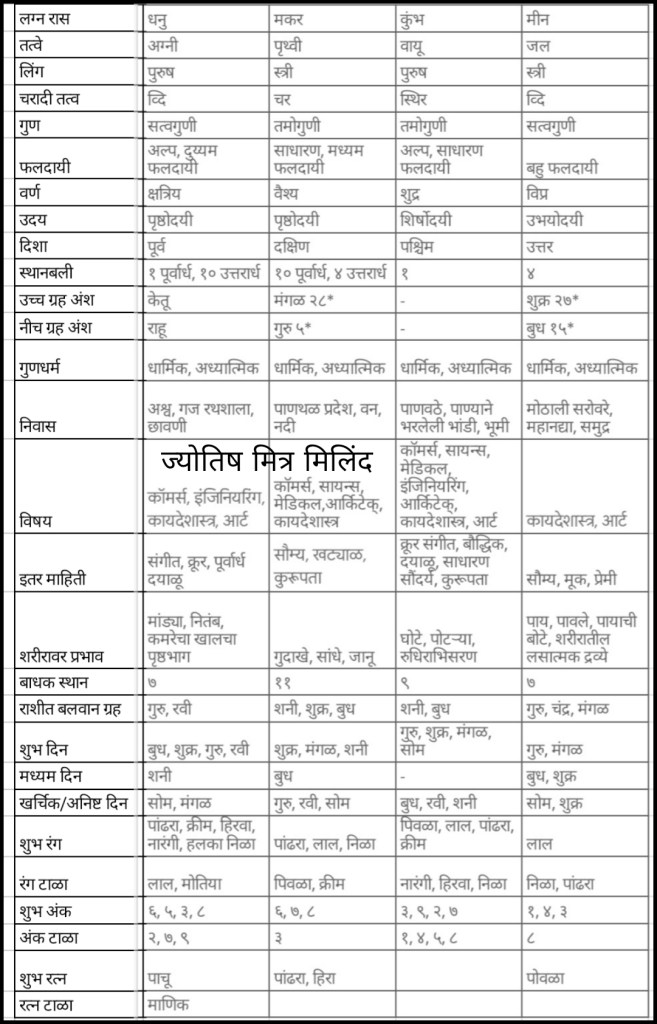 लग्न रास धनु मकर कुंभ मीन
तत्वे अग्नी पृथ्वी वायू जल
लिंग पुरुष स्त्री पुरुष स्त्री
चरादी तत्व व्दि चर स्थिर व्दि
गुण सत्वगुणी तमोगुणी तमोगुणी सत्वगुणी
अल्प, दुय्यम साधारण, मध्यम अल्प, साधारण
फलदायी फलदायी फलदायी फलदायी बहु फलदायी
वर्ण क्षत्रिय वैश्य शुद्र विप्र
उदय पृष्ठोदयी पृष्ठोदयी शिर्षोदयी उभयोदयी
दिशा पूर्व दक्षिण पश्चिम उत्तर
स्थानबली १ पूर्वार्ध, १० उत्तरार्ध १० पूर्वार्ध, ४ उत्तरार्ध १ ४
उच्च ग्रह अंश केतू मंगळ २८* - शुक्र २७*
नीच ग्रह अंश राहू गुरु ५* - बुध १५*
गुणधर्म धार्मिक, अध्यात्मिक धार्मिक, अध्यात्मिक धार्मिक, अध्यात्मिक धार्मिक, अध्यात्मिक
अश्व, गज रथशाळा, पाणथळ प्रदेश, वन, पाणवठे, पाण्याने मोठाली सरोवरे,
निवास छावणी नदी भरलेली भांडी, भूमी महानद्या, समुद्र
ज्योतिष मित्र मिलिंद
कॉमर्स, सायन्स,
मेडिकल,
कॉमर्स, इंजिनियरिंग, कॉमर्स, सायन्स, इंजिनियरिंग,
मेडिकल,आर्किटेक्, आर्किटेक्,
विषय कायदेशास्त्र, आर्ट कायदेशास्त्र कायदेशास्त्र, आर्ट कायदेशास्त्र, आर्ट
क्रूर संगीत, बौद्धिक,
संगीत, क्रूर, पूर्वार्ध सौम्य, खट्याळ, दयाळू, साधारण
इतर माहिती दयाळू कुरूपता सौंदर्य, कुरूपता सौम्य, मूक, प्रेमी
मांड्या, नितंब, पाय, पावले, पायाची
कमरेचा खालचा घोटे, पोटऱ्या, बोटे, शरीरातील
शरीरावर प्रभाव पृष्ठभाग गुदाखे, सांधे, जानू रुधिराभिसरण लसात्मक द्रव्ये
बाधक स्थान ७ ११ ९ ७
राशीत बलवान ग्रह गुरु, रवी शनी, शुक्र, बुध शनी, बुध गुरु, चंद्र, मंगळ
गुरु, शुक्र, मंगळ,
शुभ दिन बुध, शुक्र, गुरु, रवी शुक्र, मंगळ, शनी सोम गुरु, मंगळ
मध्यम दिन शनी बुध - बुध, शुक्र
खर्चिक/अनिष्ट दिन सोम, मंगळ गुरु, रवी, सोम बुध, रवी, शनी सोम, शुक्र
पांढरा, क्रीम, हिरवा, पिवळा, लाल, पांढरा,
शुभ रंग नारंगी, हलका निळा पांढरा, लाल, निळा क्रीम लाल
रंग टाळा लाल, मोतिया पिवळा, क्रीम नारंगी, हिरवा, निळा निळा, पांढरा
शुभ अंक ६, ५, ३, ८ ६, ७, ८ ३, ९, २, ७ १, ४, ३
अंक टाळा २, ७, ९ ३ १, ४, ५, ८ ८
शुभ रत्न पाचू पांढरा, हिरा पोवळा
रत्न टाळा माणिक